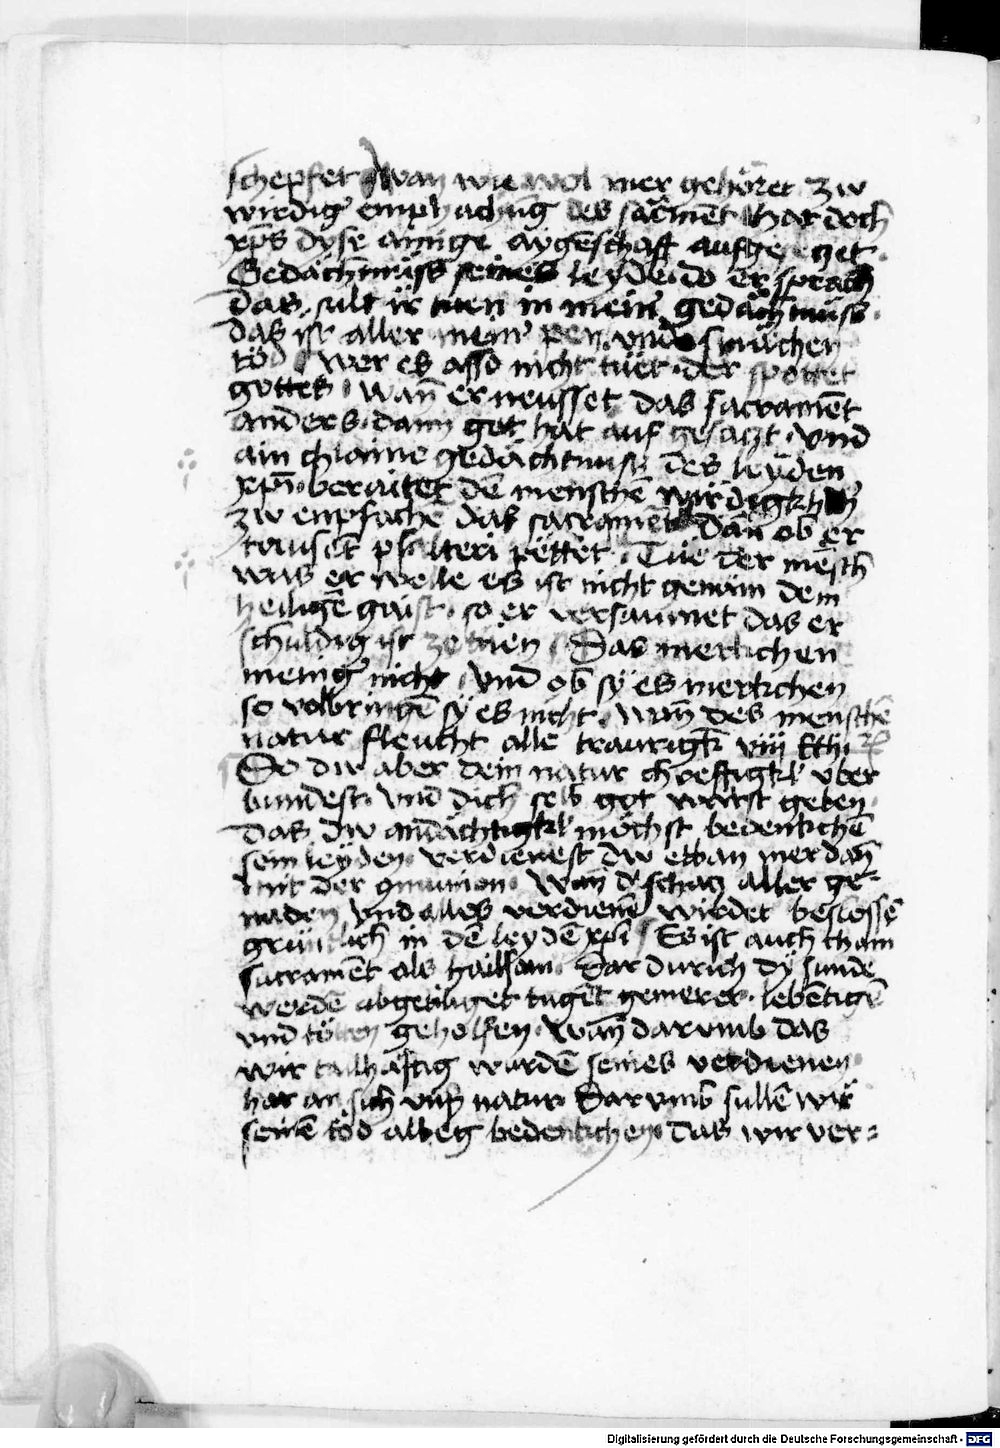 schepfet Wan wie wol mer gehöret zw
wirdig' emphachūg des sacmēt hat doch
xp̄s dyse ainige aygēschaft aufgesetzet
Gedächtnüss seines leydē do er sprach
das sult ir tuen in mein' gedächtnüss
das ist aller mein' pen vnd smächen
töd Wer es also nicht tüet der spottet
gottes Wan̄ er neusset das sacramēt
anders dann got hat auf gesatzt vnd
ain chlaine gedächtnuss des leyden
xp̄i beraitet dē menschē wirdigklich
zw enpfachē das sacramēt Dan̄ ob er
tausēt psalteri pettet Tüe der mēsch
was er welle es ist nicht genäm dem
heiligē gaist so er versaumet das er
schuldig ist ze tuen Das merkchen
menig' nicht vnd ob sy es merkchen
so volbringē sy es nicht wan̄ des menschē
natur fleucht alle traurigk̄
So dw aber dein natur chreftigkl' vber
bundest vnd dich selb got wirst geben
das dw andächtigkl' möchst bedenkchē
sein leyden verdienest dw etban mer dan̄
mit der gmunion Wan d' schatz aller ge=
naden vnd alles verdienē wirdet beslossē
grüntlich in dē leydē xp̄i Es ist auch chain
sacramēt als hailsam Dar durich dy sunde
werdē abgetilliget tugēt gemeret lebētigē
vnd tötten geholfen Wan̄ darvmb das
wir tailhäftig wurdē seines verdienen
hat an sich vnser natur Darvmb sullē wir
seinē töd albeg bedenkchen das wir ver=
Digitalisierung gefördert durch die Deutsche Forschungsgemeinschaft - DFG